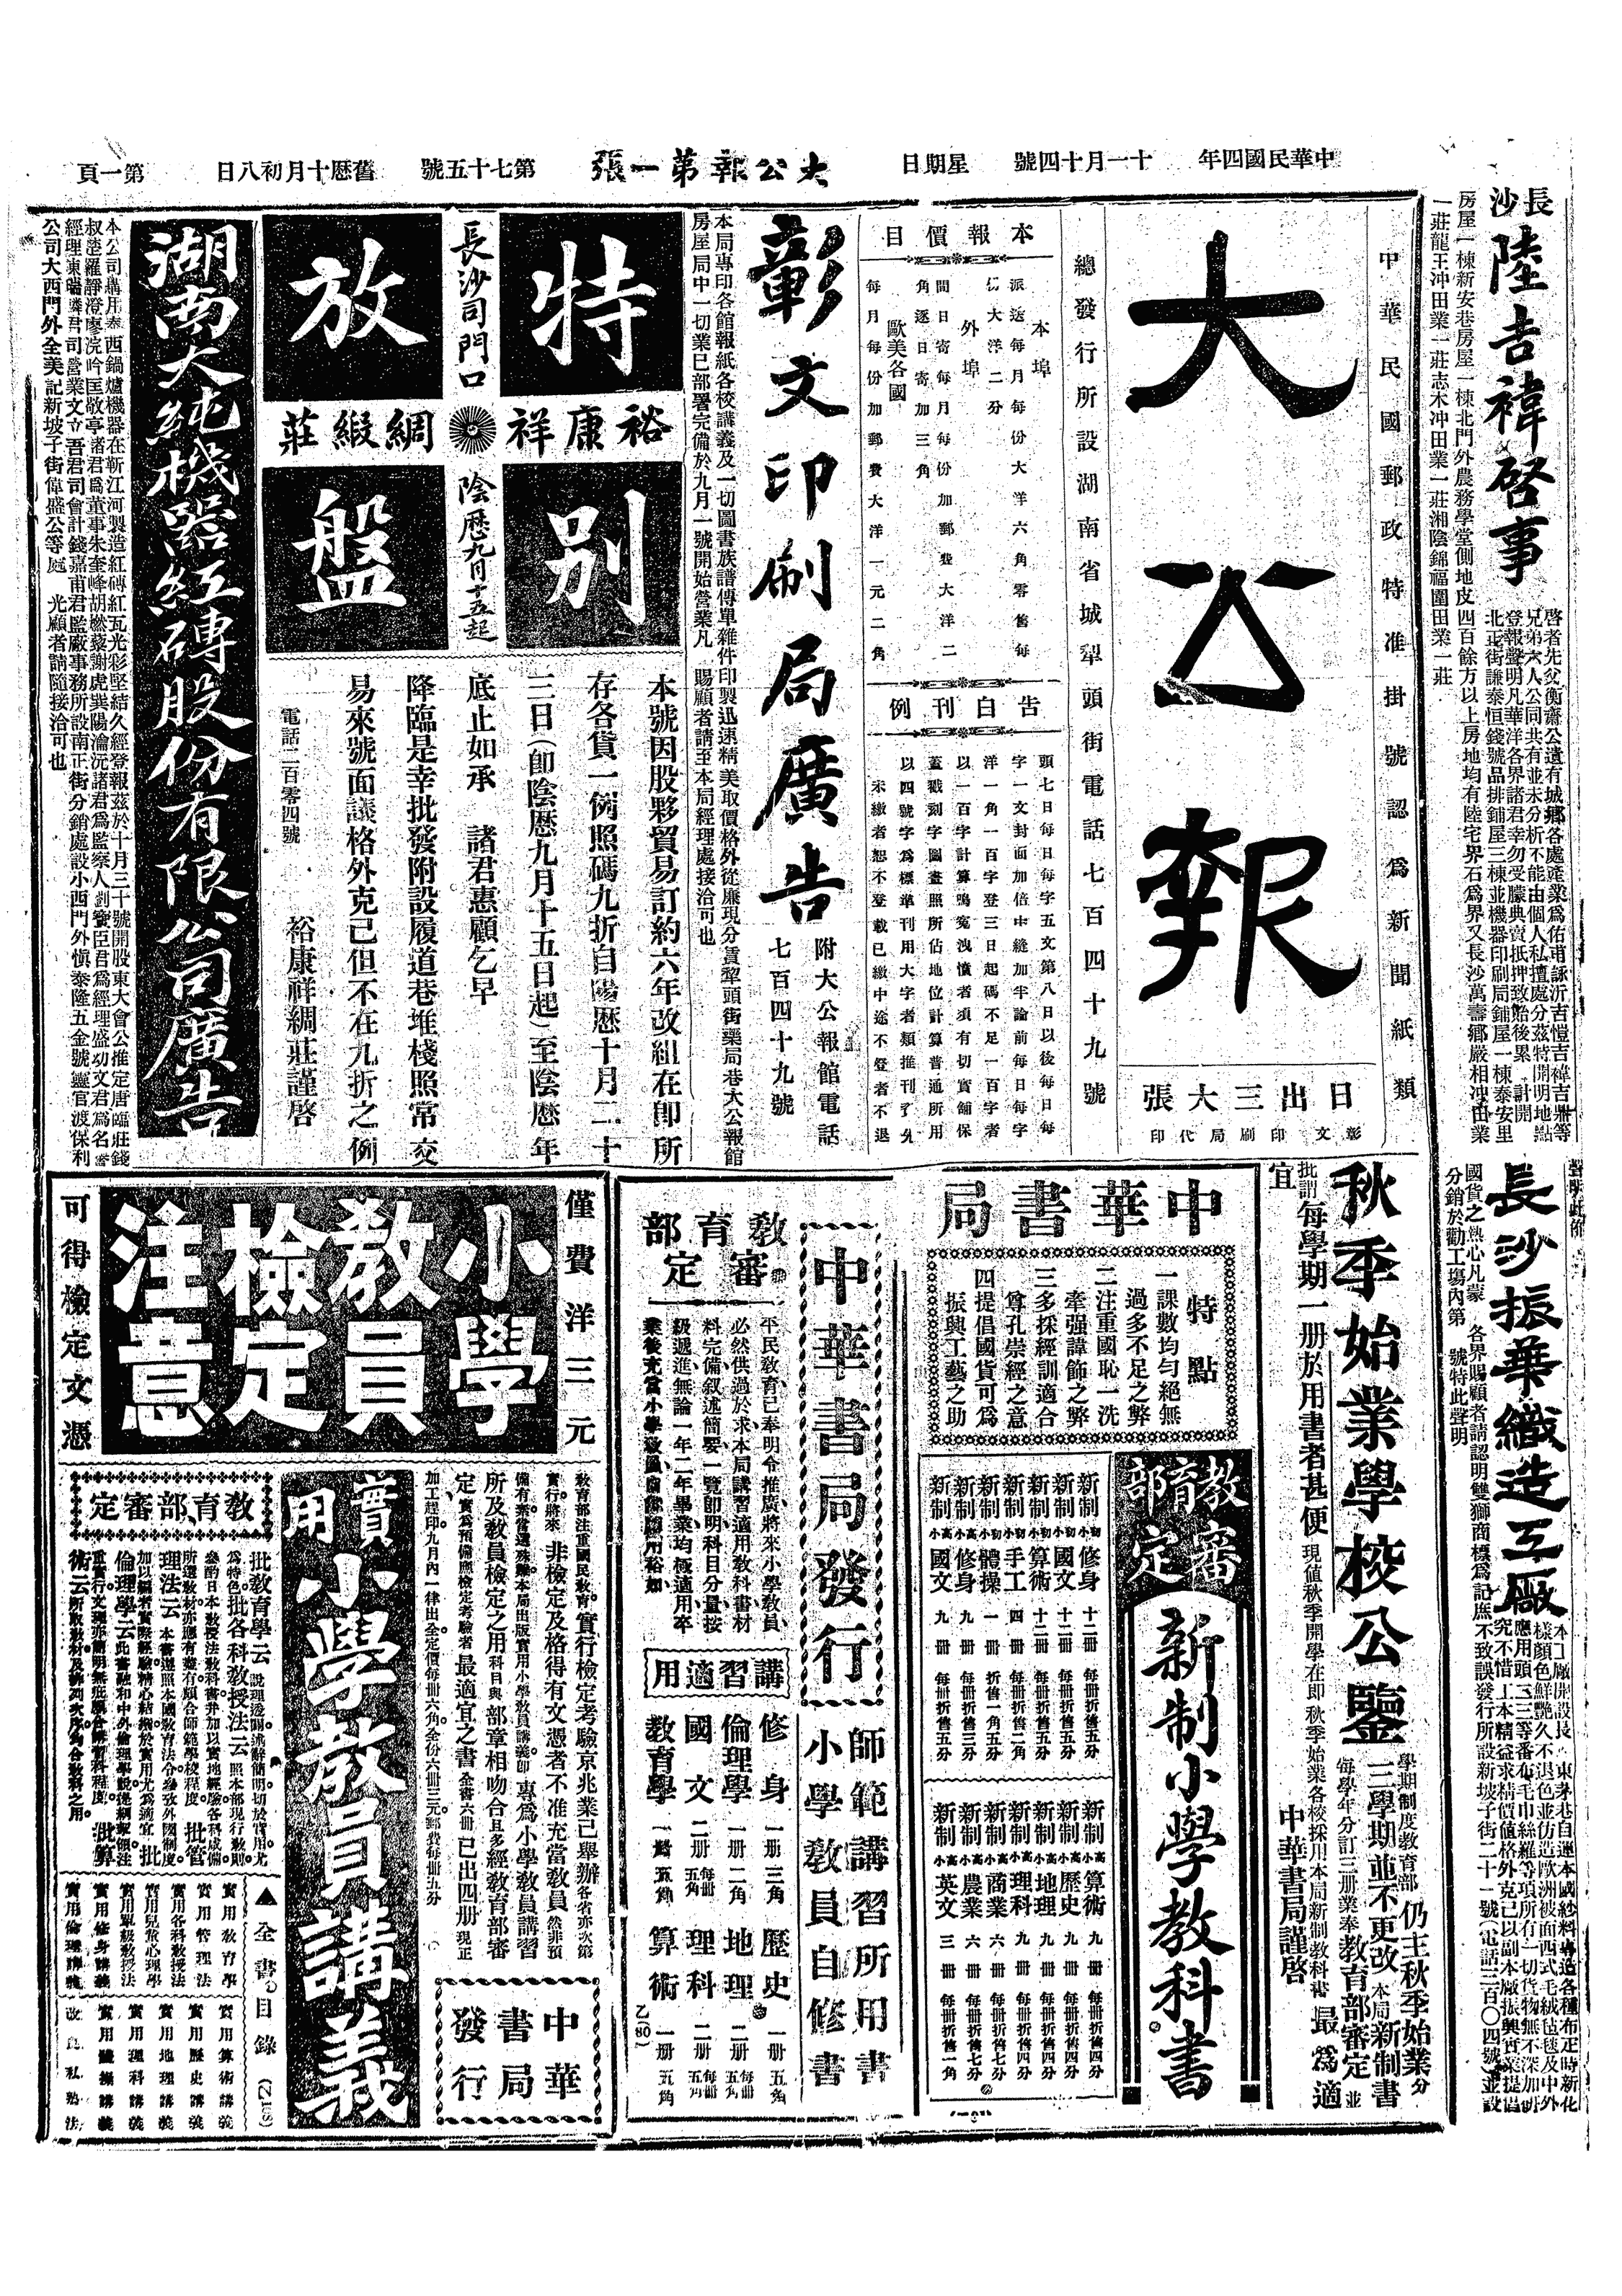 中華民國四年 十一月十四號 星期日 大公報第一張 第七十五號 舊歷十月初八日 第一頁
長沙
陸吉褘啓事
啓者先父衡齋公遺有城鄉各處產業爲佑甫詠沂吉愷吉褘吉鼎等
兄弟六人公同共有並未分析不能由個人私擅處分茲特開明地點
登報聲明凡華洋各界諸君幸勿受朦典賣抵押致貽後累 計開
北正街謙泰恒錢號品排鋪屋三棟並機器印刷局鋪屋一棟泰安里
房屋一棟新安巷房屋一棟北門外農務學堂側地皮四百餘方以上房地均有陸宅界石爲界又長沙萬壽鄉嚴相沖田業
一莊龍王冲田業一莊志木冲田業一莊湘陰錦福圍田業一莊
長沙振華織造工廠
國貨之熱心凡蒙 各界賜顧者請認明雙獅商標爲記庶不致誤發行所設新坡子街二十一號(電話三百〇四號)並設
分銷於勸工塲內第 號特此聲明
中華民國郵政特准掛號認爲新聞紙類
大公報
日出三大張
彰文印刷局代印
總發行所設湖南省城犁頭街電話七百四十九號
本報價目
本埠
派送每月每份大洋六角零售每
份大洋二分
外埠
間日寄每月每份加郵費大洋二
角逐日寄加三角
歐美各國
每月每份加郵費大洋一元二角
告白刊例
頭七日每日每字五文第八日以後每日每
字一文封面加倍中縫加半論前每日每字
洋一角一百字登三日起碼不足一百字者
以一百字計算鳴寃洩憤者須有切實鋪保
蓋戳刻字圖畫照所佔地位計算普通所用
以四號字爲標準刊用大字者類推刊資
未繳者恕不登載已繳中途不登者不退
彰文印刷局廣告
附大公報館電話
七百四十九號
本局專印各館報紙各校講義及一切圖書族譜傳單雜件印製迅速精美取價格外從廉現分賃犁頭街藥局巷大公報館
房屋局中一切業已部署完備於九月一號開始營業凡 賜顧者請至本局經理處接洽可也
特別放盤
長沙司門口
裕康祥綢緞莊
陰歷九月十五起
本號因股夥貿易訂約六年改組在即所
存各貨一例照碼九折自陽歷十月二十
三日(即陰歷九月十五日起)至陰歷年
底止如承 諸君惠顧乞早
降臨是幸批發附設履道巷堆棧照常交
易來號面議格外克己但不在九折之例
電話二百零四號 裕康祥綢莊謹啓
湖南大純機器紅磚股份有限公司廣告
本公司購用泰西鍋爐機器在靳江河製造紅磚紅瓦光彩堅結久經登報茲於十月三十號開股東大會公推定唐臨莊錢
公司大西門外全美記新坡子街偉盛公等處 光顧者請隨接洽可也
秋季始業學校公鑒
學期制度教育部 仍主秋季始業分
三學期並不更改 本局新制書
每學年分訂三册業奉教育部審定並
批謂每學期一册於用書者甚便 現值秋季開學在即 秋季始業各校採用本局新制教科書 最爲適
宜
中華書局謹啓
中華書局
特點
一課數均勻絕無
過多不足之弊
二注重國恥一洗
牽强諱飾之弊
三多採經訓適合
尊孔崇經之意
四提倡國貨可爲
振興工藝之助
教育部審定
新制小學教科書
新制初小修身 十二册 每册折售五分
新制初小國文 十二册 每册折售五分
新制初小算術 十二册 每册折售五分
新制初小手工 四册 每册折售二角
新制初小體操 一册 折售一角五分
新制高小修身 九册 每册折售三分
新制高小國文 九册 每册折售五分
新制高小算術 九册 每册折售四分
新制高小歷史 九册 每册折售四分
新制高小地理 九册 每册折售四分
新制高小理科 九册 每册折售四分
新制高小商業 六册 每册折售七分
新制高小農業 六册 每册折售七分
新制高小英文 三册 每册折售一角
中華書局發行
師範講習所用書
小學教員自修書
教育部審定
平民教育已奉明令推廣將來小學教員
必然供過於求本局講習適用教科書材
料完備叙述簡要一覽即明科目分量按
級遞進無論一年二年畢業均極適用卒
業後充當小學教員
講習適用
修身 一册 三角
倫理學 一册 二角
國文 二册 每册五角
教育學 一册 五角
歷史 一册 五角
地理 二册 每册五角
理科 二册 每册五角
算術 一册 五角
乙(80)
小學教員檢定注意
僅費洋三元
可得檢定文憑
教育部注重國民教育實行檢定考驗京兆業已舉辦各省亦次第
實行將來非檢定及格得有文憑者不准充當教員然非預
備有素當遺殊難本局出版實用小學教員講義即專爲小學教員講習
所及教員檢定之用科目與部章相吻合且多經教育部審
定實爲預備應檢定考驗者最適宜之書全書六册已出四册現正
加工趕印九月內一律出全定價每册六角全份六册三元郵費每册五分
中華書局發行
實用小學教員講義
教育部審定
批教育學云 說理透闢達辭簡明切於實用尤
爲特色批各科教授法云 照本部現行教則
參酌日本教授法教科書並加以實地經驗各科咸備
所選教材亦應有盡有頗合師範學校程度 批管
理法云 本書遵照本國教育法令參攷外國制度
加以編者實際經驗精心結撰於實用尤爲適宜 批
倫理學云 此書融和中外倫理學說提綱挈領注
重實行文理亦簡明無疵頗合講習科程度 批算
術云 所取教材及排列次序均合教科之用
▲全書目錄 (乙108)
實用教育學
實用管理法
實用各科教授法
實用單級教授法
實用兒童心理學
實用修身講義
實用倫理講義
實用算術講義
實用歷史講義
實用地理講義
實用理科講義
實用體操講義
改良私塾法